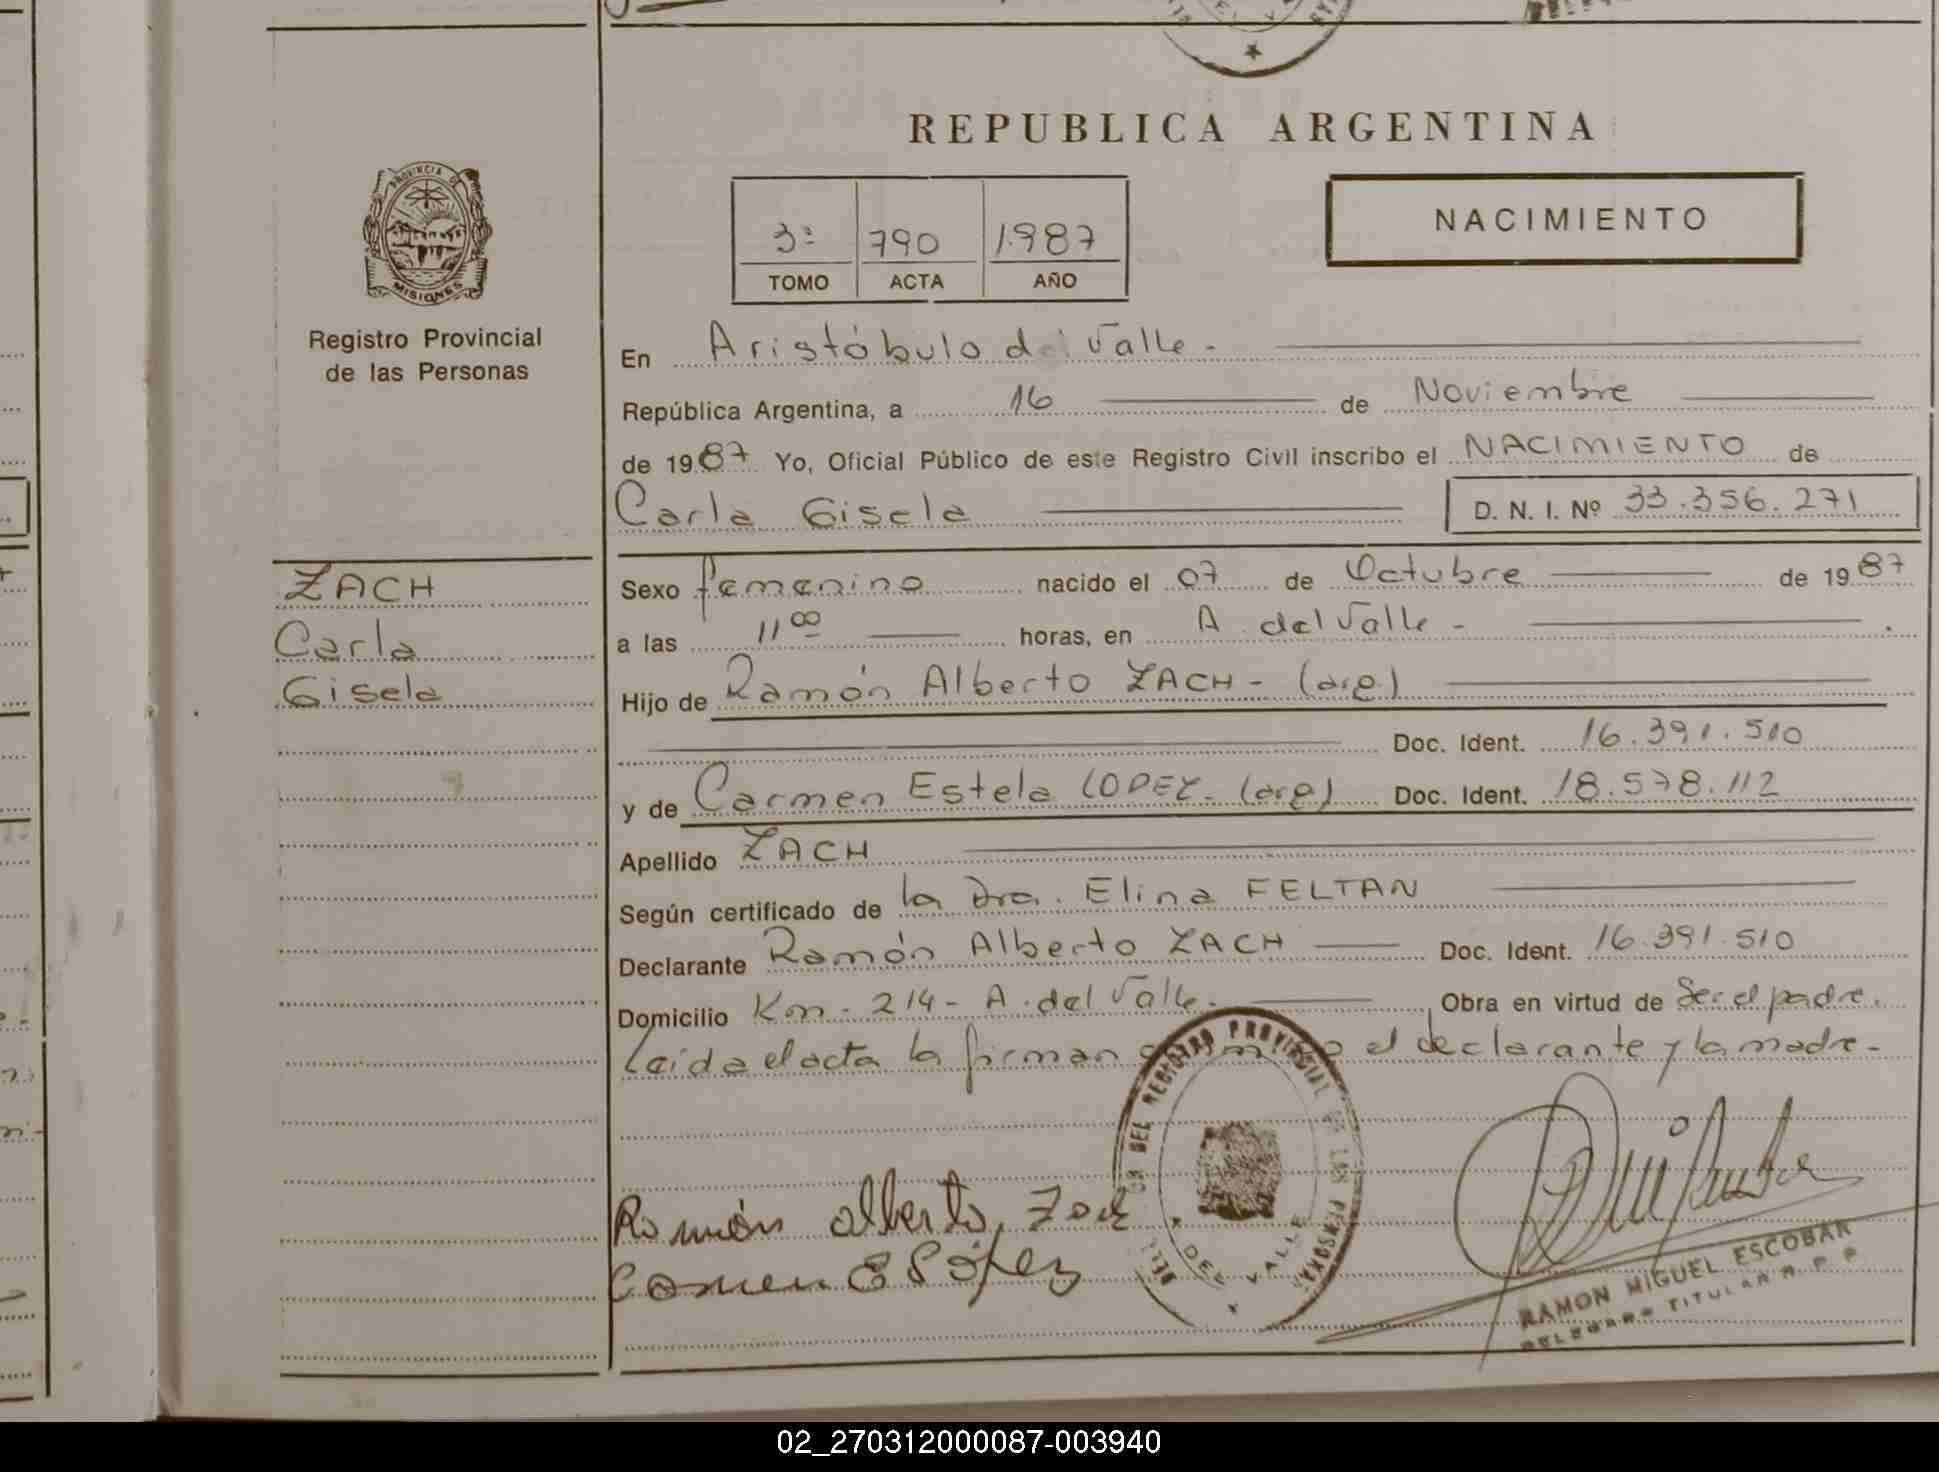 REPUBLICA ARGENTINA
PROVINCIA DE
MISIONES
Registro Provincial
de las Personas
3ª 790 1.987
TOMO ACTA AÑO
NACIMIENTO
En Aristóbulo del Valle -
República Argentina, a 16 de Noviembre
de 1987 Yo, Oficial Público de este Registro Civil inscribo el NACIMIENTO de
Carla Gisela D. N. I. Nº 33.356.271
ZACH
Carla
Gisela
Sexo femenino nacido el 07 de Octubre de 1987
a las 11 00 horas, en A. del Valle -
Hijo de Ramón Alberto ZACH - (arg.)
Doc. Ident. 16.391.510
y de Carmen Estela LOPEZ - (arg) Doc. Ident. 18.578.112
Apellido ZACH
Según certificado de la Dra. Elina FELTAN
Declarante Ramón Alberto ZACH Doc. Ident. 16.391.510
Domicilio Km - 214 - A. del Valle - Obra en virtud de Ser el padre.
Leida el acta la firman el declarante y la madre -
DEL REGISTRO PROVINCIAL DE LAS PERSONAS
DEL VALLE
Ramón alberto Zach
Carmen E López
RAMON MIGUEL ESCOBAR
DELEGADO TITULAR R P P
02_270312000087-003940